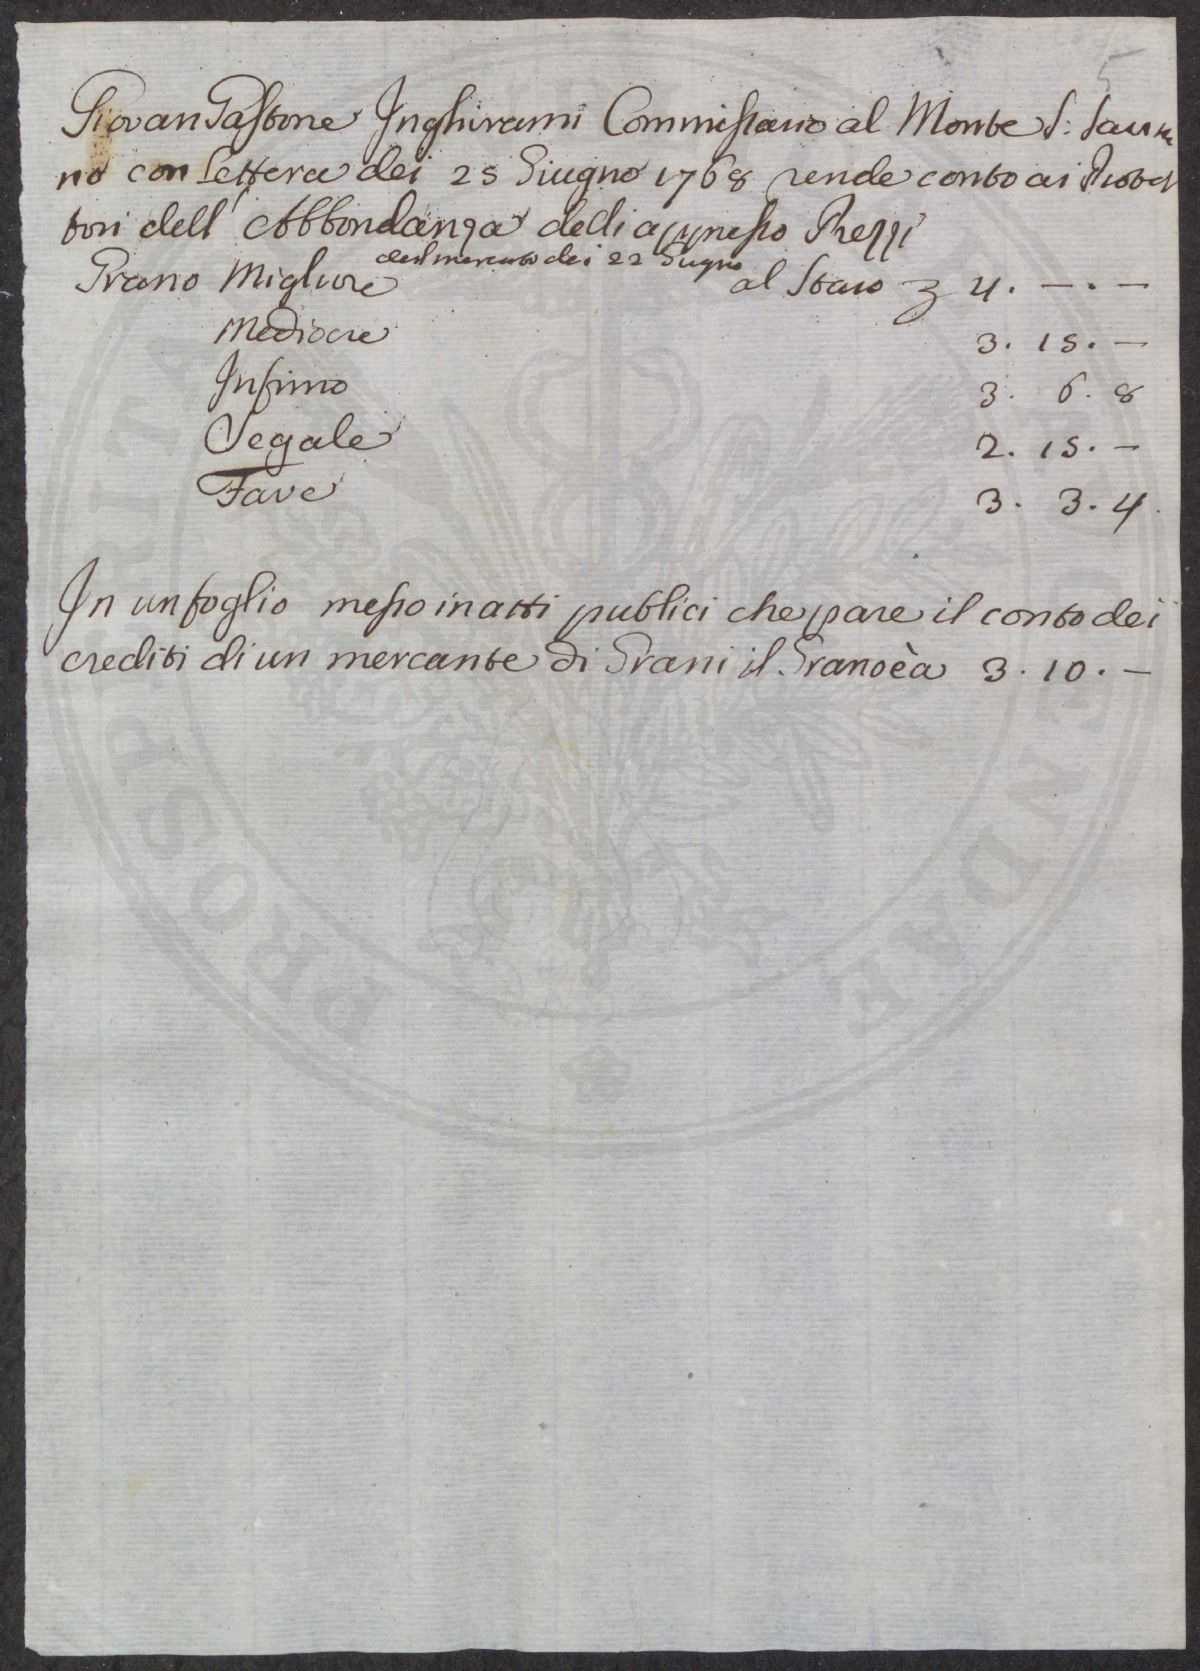 5
Giovan Pastone Inghirami Commissario al Monte S: Savi
no con Lettera dei 25 Giugno 1768 rende conto ai Protet
tori dell' Abbondanza delli appresso Prezzi
del mercato dei 22 Giugno
Grano Migliore al Staio 4. —. —
Mediocre 3. 15. —
Infimo 3. 6. 8
Segale 2. 15. —
Fave 3. 3. 4.
In un foglio messo in atti publici che pare il conto dei
crediti di un mercante di Grani il Grano è a 3. 10. —
PROSPERITATI
ENDAE